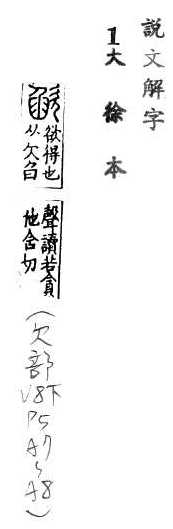 説文解字
1大徐本
欿
欲得也
从欠臽
聲讀若貪
他含切
（欠部V8下P5A7~A8）